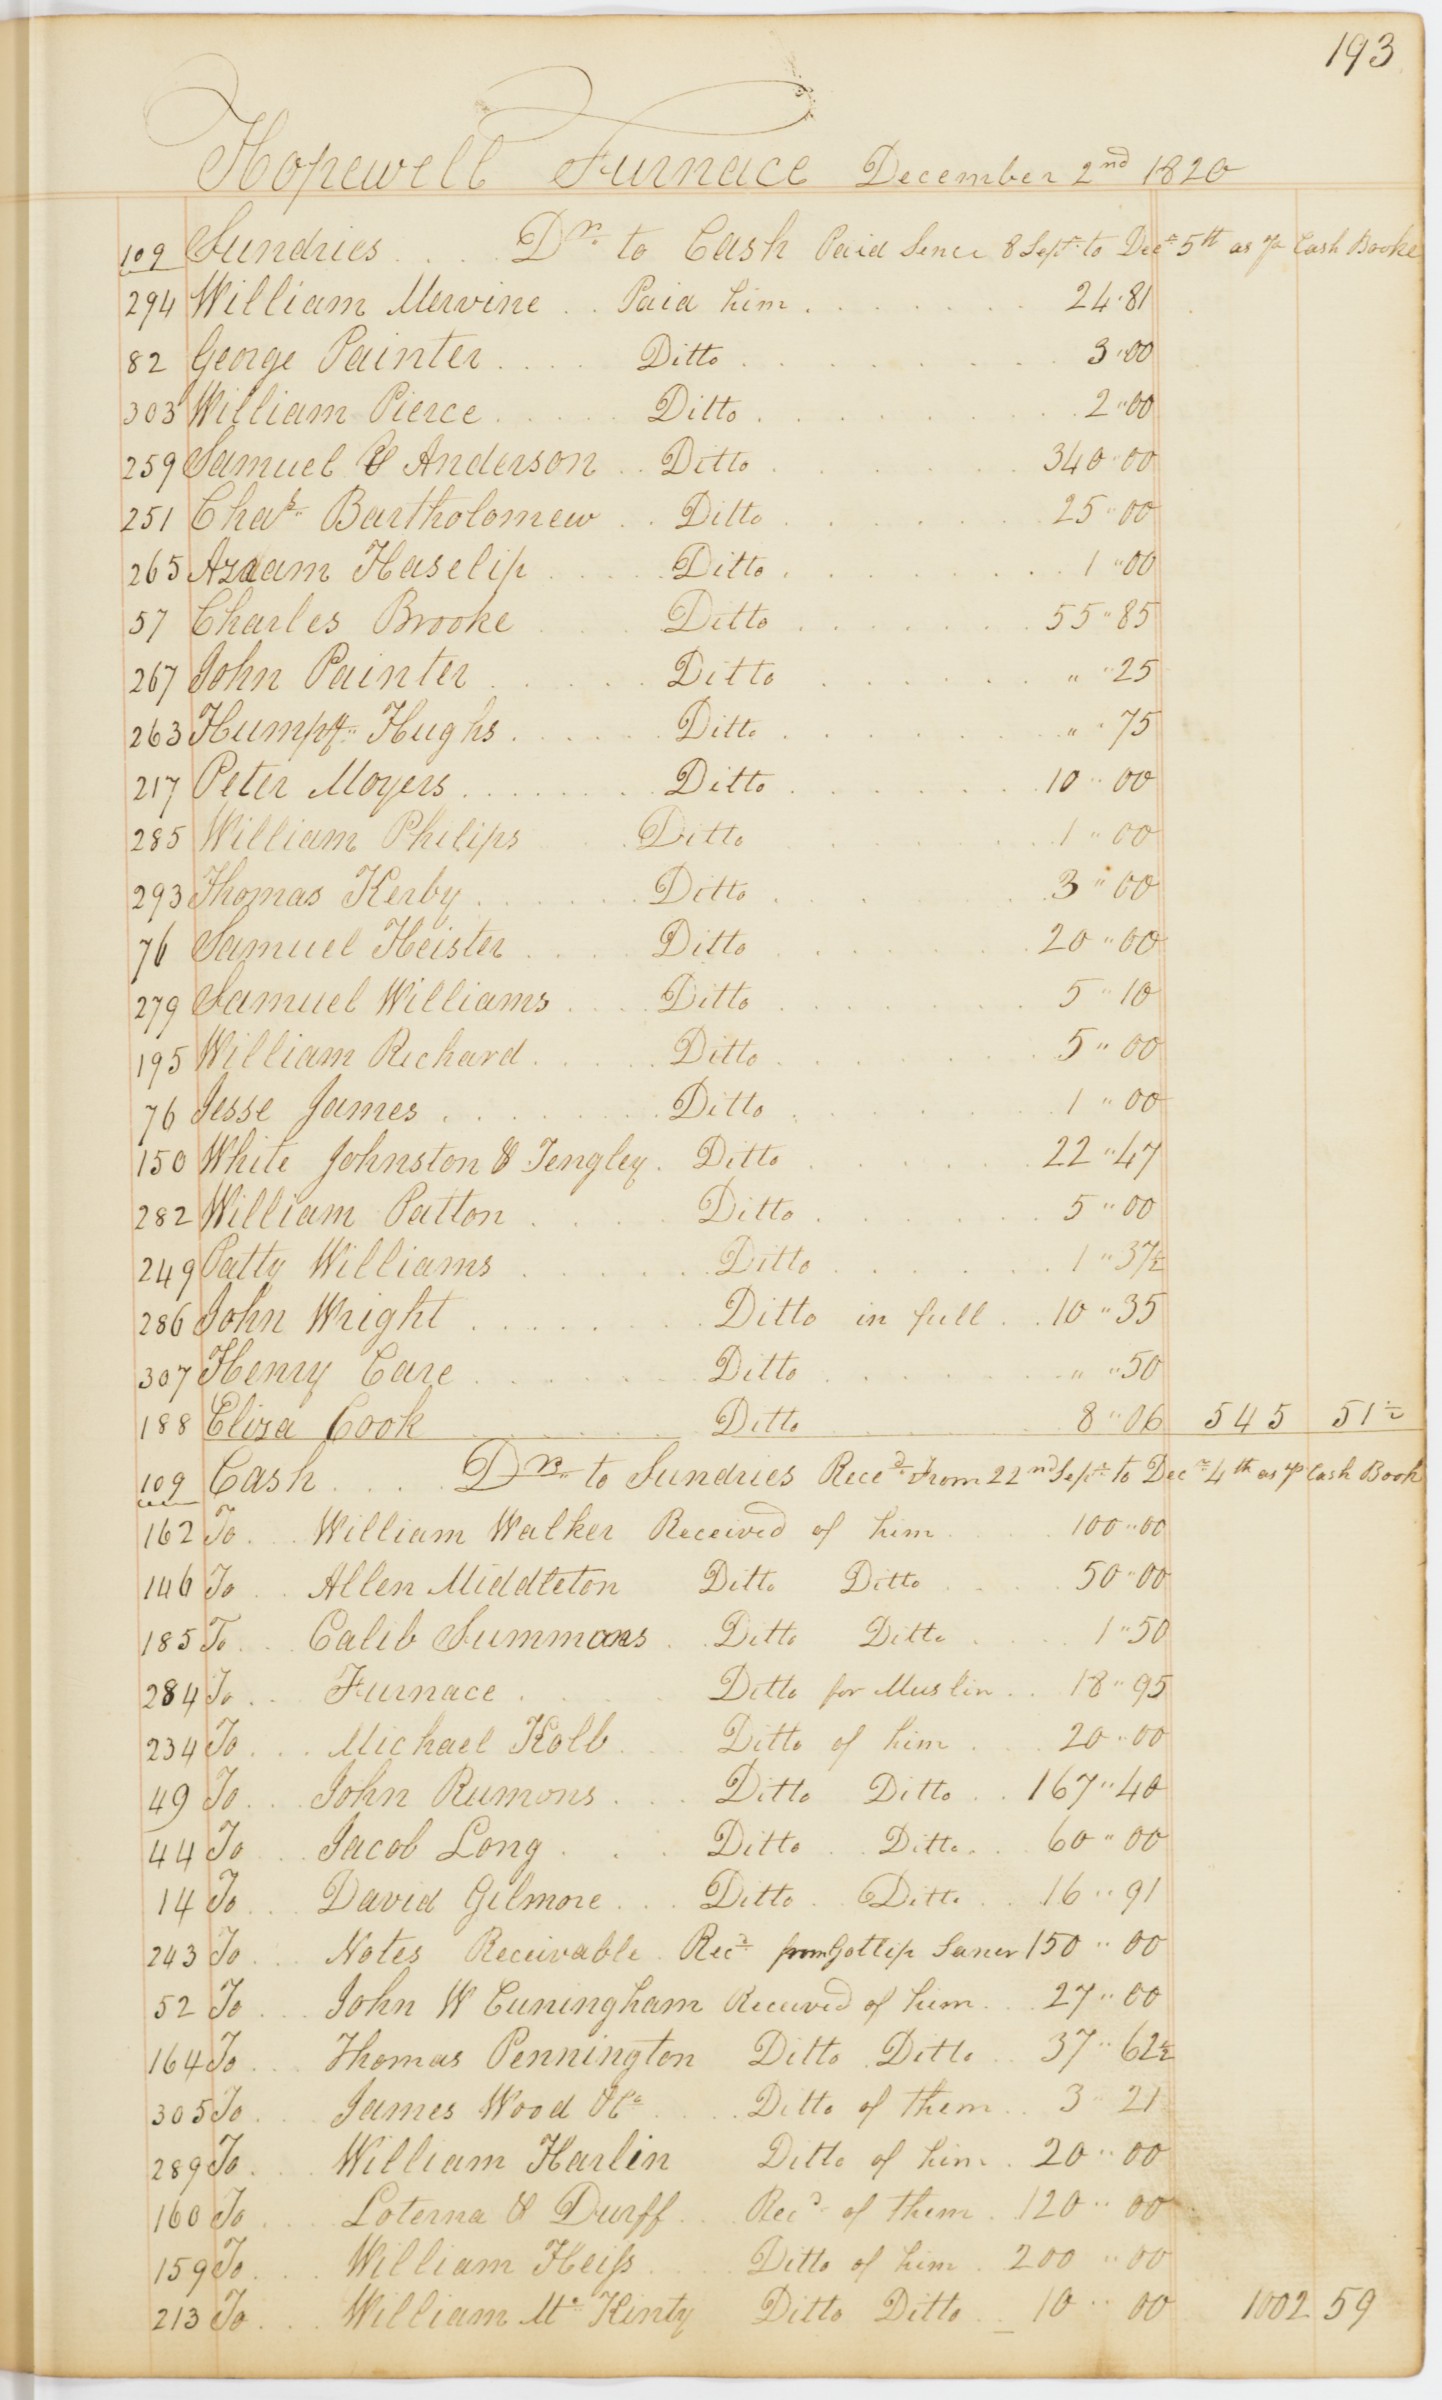 193
Hopewell Furnace December 2nd 1820
109 Sundries . . . . Dr. to Cash Paid Since 8 Sept. to Dec. 5th as pr Cash Booke
294 William Mervine . . Paid him . . . . . . . 24"81
82 George Painter . . . . Ditto . . . . . . . 3"00
303 William Pierce . . . . . Ditto . . . . . . . 2"00
259 Samuel & Anderson . . Ditto . . . . . . 340"00
251 Chas. Bartholomew . . Ditto . . . . . . 25"00
265 Azaam Haselip . . . . . Ditto . . . . . . . 1"00
57 Charles Brooke . . . . Ditto . . . . . . . 55"85
267 John Painter . . . . . Ditto . . . . . . . " "25
263 Humpy. Hughs . . . . . . Ditto . . . . . . . " "75
217 Peter Moyers . . . . . . . Ditto . . . . . . . 10"00
285 William Philips . . . Ditto . . . . . . . 1"00
293 Thomas Kerby . . . . . . Ditto . . . . . . . 3"00
76 Samuel Heister . . . . Ditto . . . . . . . 20"00
279 Samuel Williams . . . . Ditto . . . . . . . 5"10
195 William Richard . . . . . Ditto . . . . . . . 5"00
76 Jesse James . . . . . . . Ditto . . . . . . . 1"00
150 White Johnston & Tengley . Ditto . . . . . . 22"47
282 William Patton . . . . Ditto . . . . . . 5"00
249 Patty Williams . . . . . . Ditto . . . . . . 1"37½
286 John Wright . . . . . . . . Ditto in full . . 10"35
307 Henry Care . . . . . . . Ditto . . . . . . . " "50
188 Eliza Cook . . . . . . Ditto . . . . . . 8"06 545 51½
109 Cash . . . . Dr. to Sundries Rece.d From 22nd Sept. to Dec. 4th as pr Cash Book
162 To . . . William Walker Received of him . . . 100"00
146 To . . Allen Middleton Ditto Ditto . . . 50"00
185 To . . . Calib Summons . . Ditto Ditto . . . . 1"50
284 To . . . Furnace . . . . . Ditto for Muslin . . 18"95
234 To . . . Michael Kolb . . . Ditto of him . . . 20"00
49 To . . . John Rumons . . . Ditto Ditto . . 167"40
44 To . . Jacob Long . . . Ditto Ditto . . 60"00
14 To . . . David Gilmore . . . Ditto . Ditto . . 16"91
243 To . . . Notes Receivable . Recd. from Gottlip Saner 150"00
52 To . . . John W Cuningham Received of him . . 27"00
164 To . . . Thomas Pennington Ditto Ditto . . 37"62½
305 To . . . James Wood & Co . . . Ditto of them . . 3"21
289 To . . . William Harlin Ditto of him . 20"00
160 To . . . Loterna & Durff . . Recd. of them . 120"00
159 To . . . William Heiss . . . Ditto of him . 200"00
213 To . . . William Mc. Kinty Ditto Ditto . . 10"00 1002 59